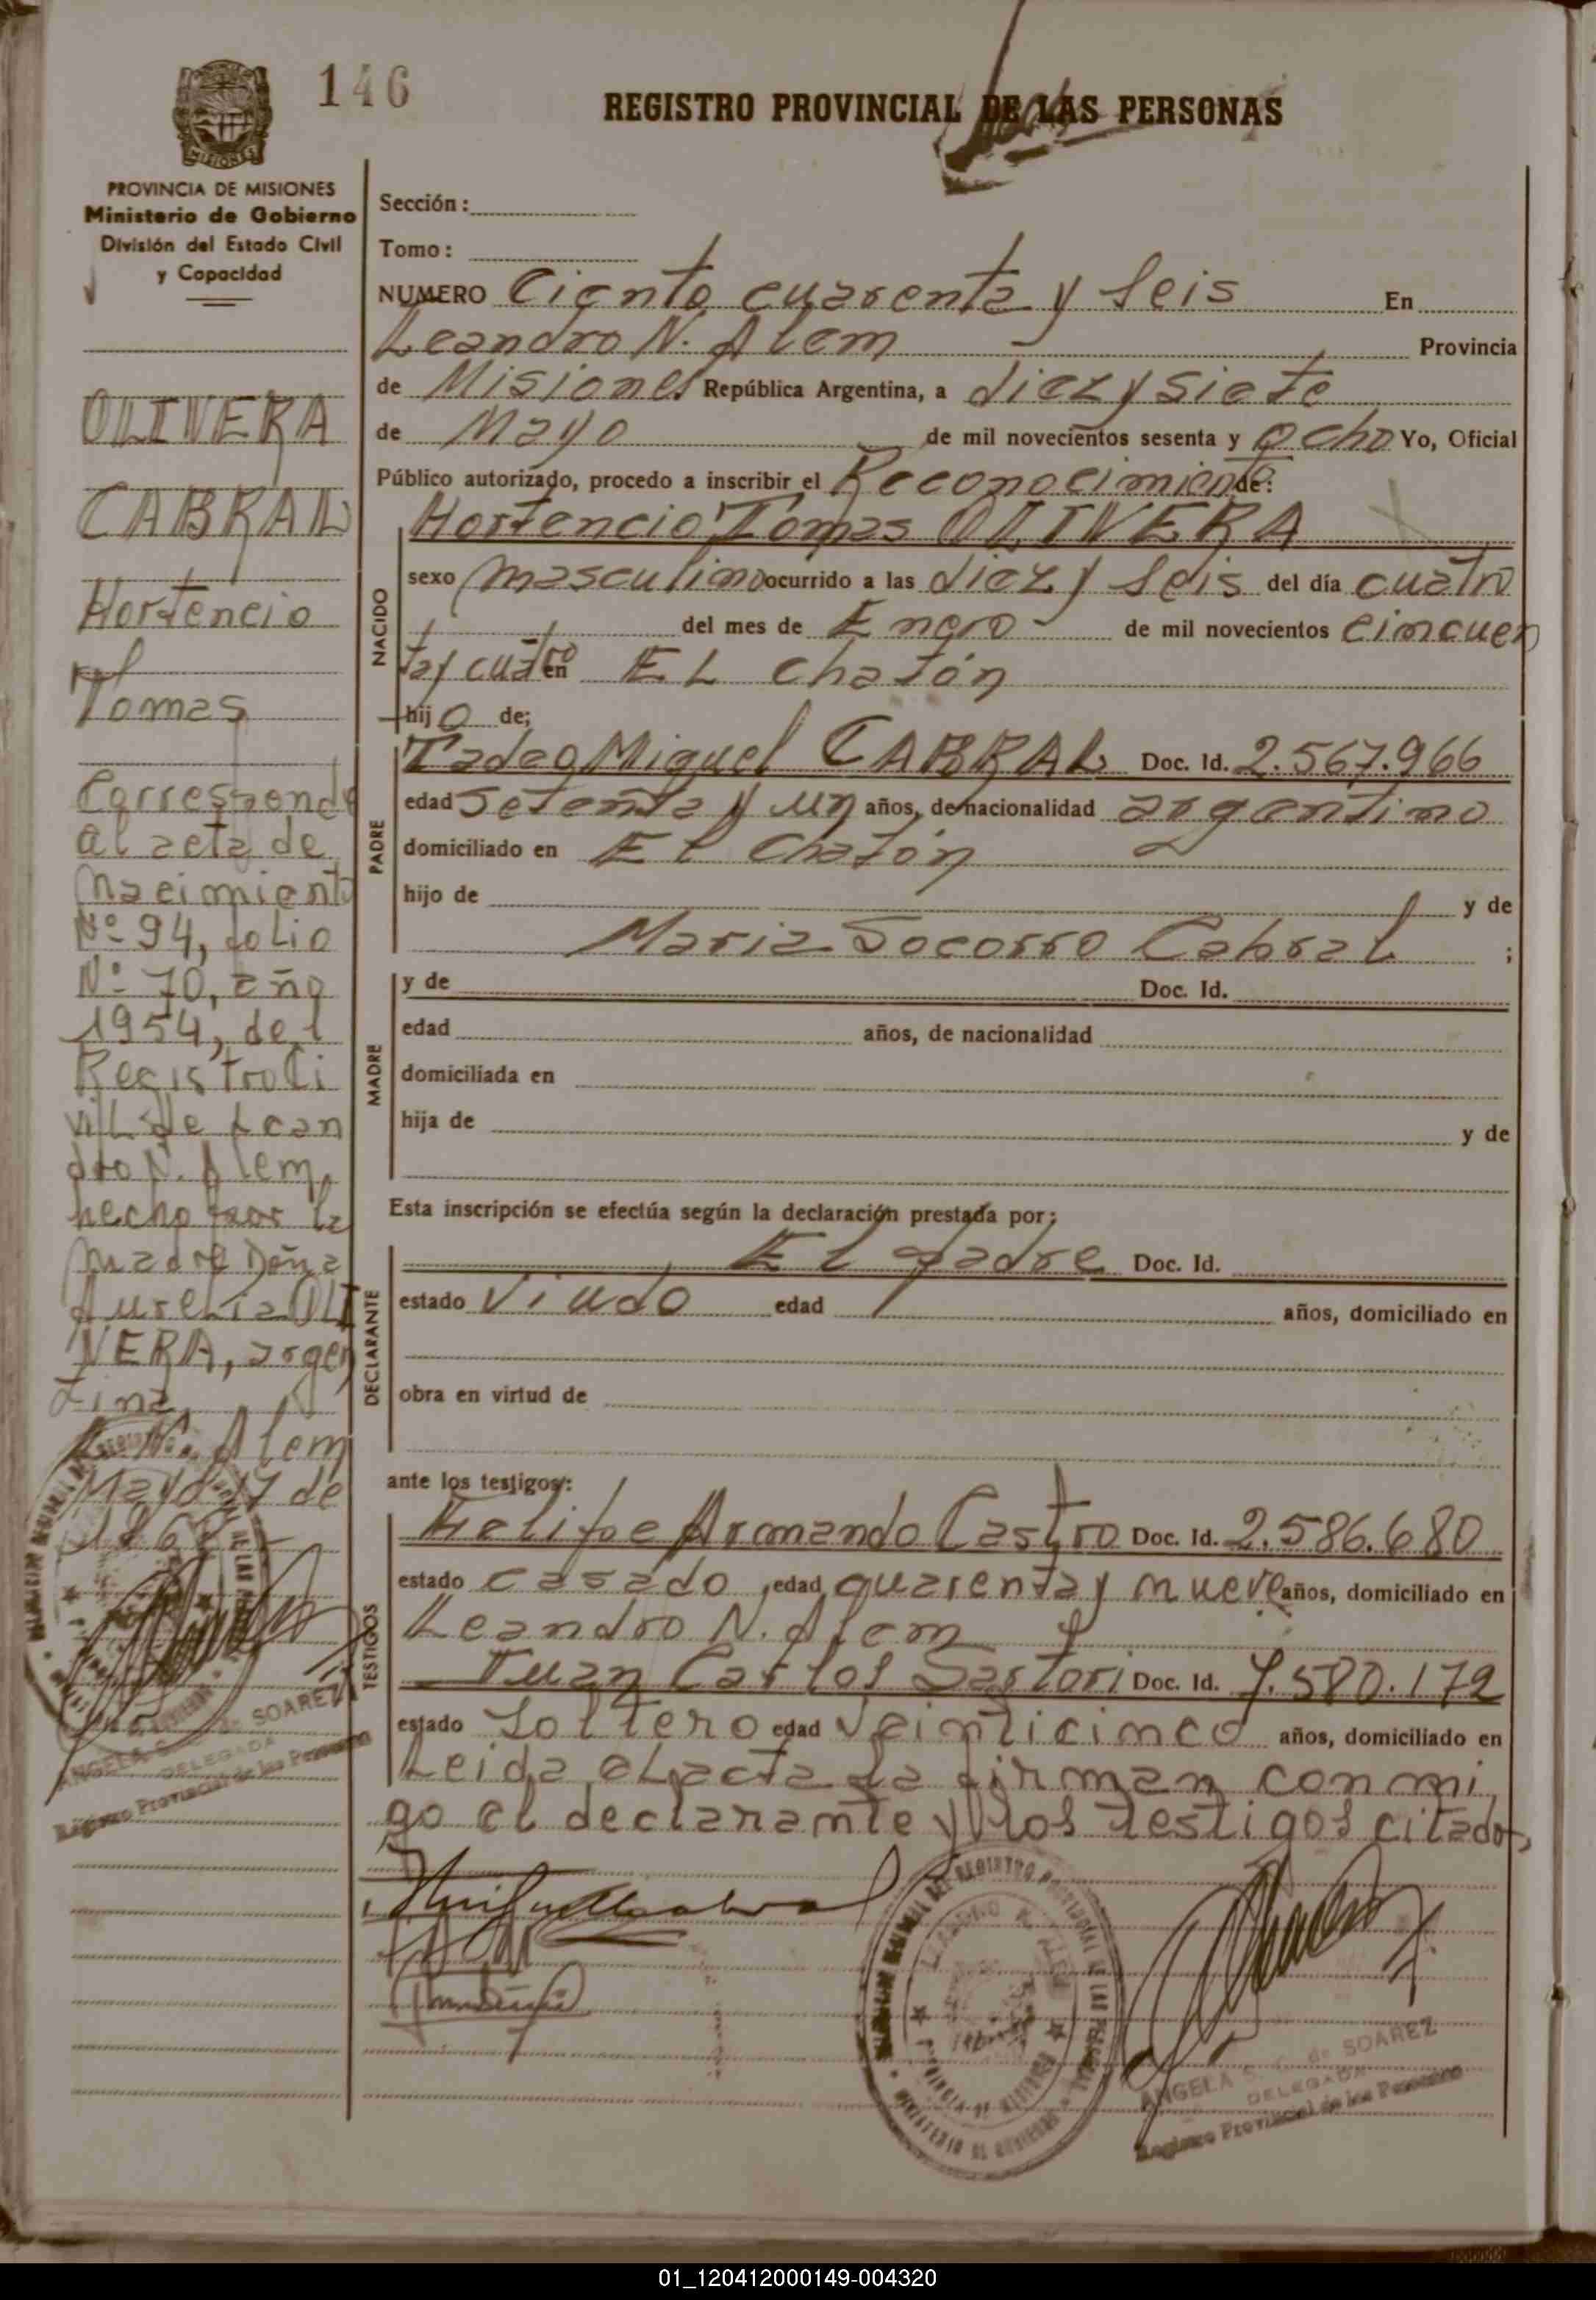 146
REGISTRO PROVINCIAL DE LAS PERSONAS
MISIONES
PROVINCIA DE MISIONES
Ministerio de Gobierno
División del Estado Civil
y Capacidad
OLIVERA
CABRAL
Hortencio
Tomas
Corresponde
al acta de
Nacimiento
Nº 94, folio
Nº 70, año
1954, del
Registro Ci
vil de Lean
dro N. Alem,
hecho por la
madre Doña
Aurelia OLI
VERA, argen
tina
L. N. Alem
Mayo 17 de
1968
ANGELA S. de SOAREZ
DELEGADA
Registro Provincial de las Personas
Sección:
Tomo:
NUMERO Ciento cuarenta y seis En
Leandro N. Alem Provincia
de Misiones República Argentina, a diez y siete
de Mayo de mil novecientos sesenta y ocho Yo, Oficial
Público autorizado, procedo a inscribir el Reconocimien de:
NACIDO
Hortencio Tomas OLIVERA
sexo masculino ocurrido a las diez y seis del día cuatro
del mes de Enero de mil novecientos cincuen
ta y cuatro en EL Chatón
hijo de;
PADRE
Tadeo Miguel CABRAL Doc. Id. 2.567.966
edad setenta y un años, de nacionalidad argentino
domiciliado en El Chatón
hijo de y de
Maria Socorro Cabral ;
MADRE
y de Doc. Id.
edad años, de nacionalidad
domiciliada en
hija de y de
Esta inscripción se efectúa según la declaración prestada por:
DECLARANTE
El padre Doc. Id.
estado Viudo edad años, domiciliado en
obra en virtud de
ante los testigos:
TESTIGOS
Felipe Armando Castro Doc. Id. 2.586.680
estado casado, edad quarenta y nueve años, domiciliado en
Leandro N. Alem y
Juan Carlos Sartori Doc. Id. 7.580.172
estado Soltero edad veinticinco años, domiciliado en
Leida el acta la firman conmi
go el declarante y los testigos citados,
LEANDRO N. ALEM
PROVINCIA DE MISIONES
MINISTERIO DE GOBIERNO
ANGELA S. de SOAREZ
DELEGADA
Registro Provincial de las Personas
01_120412000149-004320